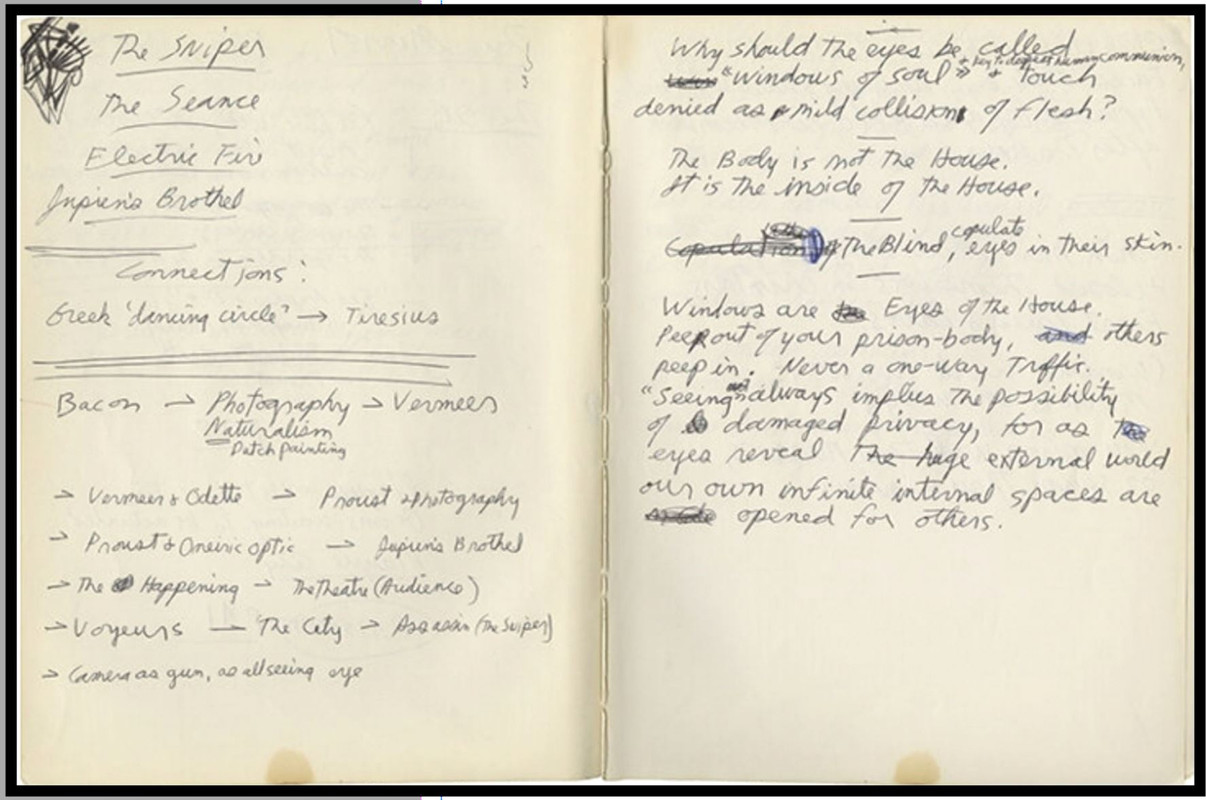 The Sniper
The Seance
Electric Fir
Jupien's Brothel
Connections:
Greek 'dancing circle' → Tiresius
Bacon → Photography → Vermeer
Naturalism
Dutch painting
→ Vermeer & Odette → Proust & photography
→ Proust & Oneiric optic → Jupien's Brothel
→ The Happening → The Theatre (Audience)
→ Voyeurs — The City → Assassin (The Sniper)
→ Camera as gun, as all seeing eye
Why should the eyes be called
+ key to deepest human communion,
"windows of soul" + touch
denied as mild collision of flesh?
The Body is not the House.
It is the inside of the House.
copulate
Copulation of The Blind, eyes in their skin.
Windows are the Eyes of the House.
Peep out of your prison-body, and others
peep in. Never a one-way Traffic.
"Seeing" always implies the possibility
of damaged privacy, for as the
eyes reveal The huge external world
our own infinite internal spaces are
opened for others.